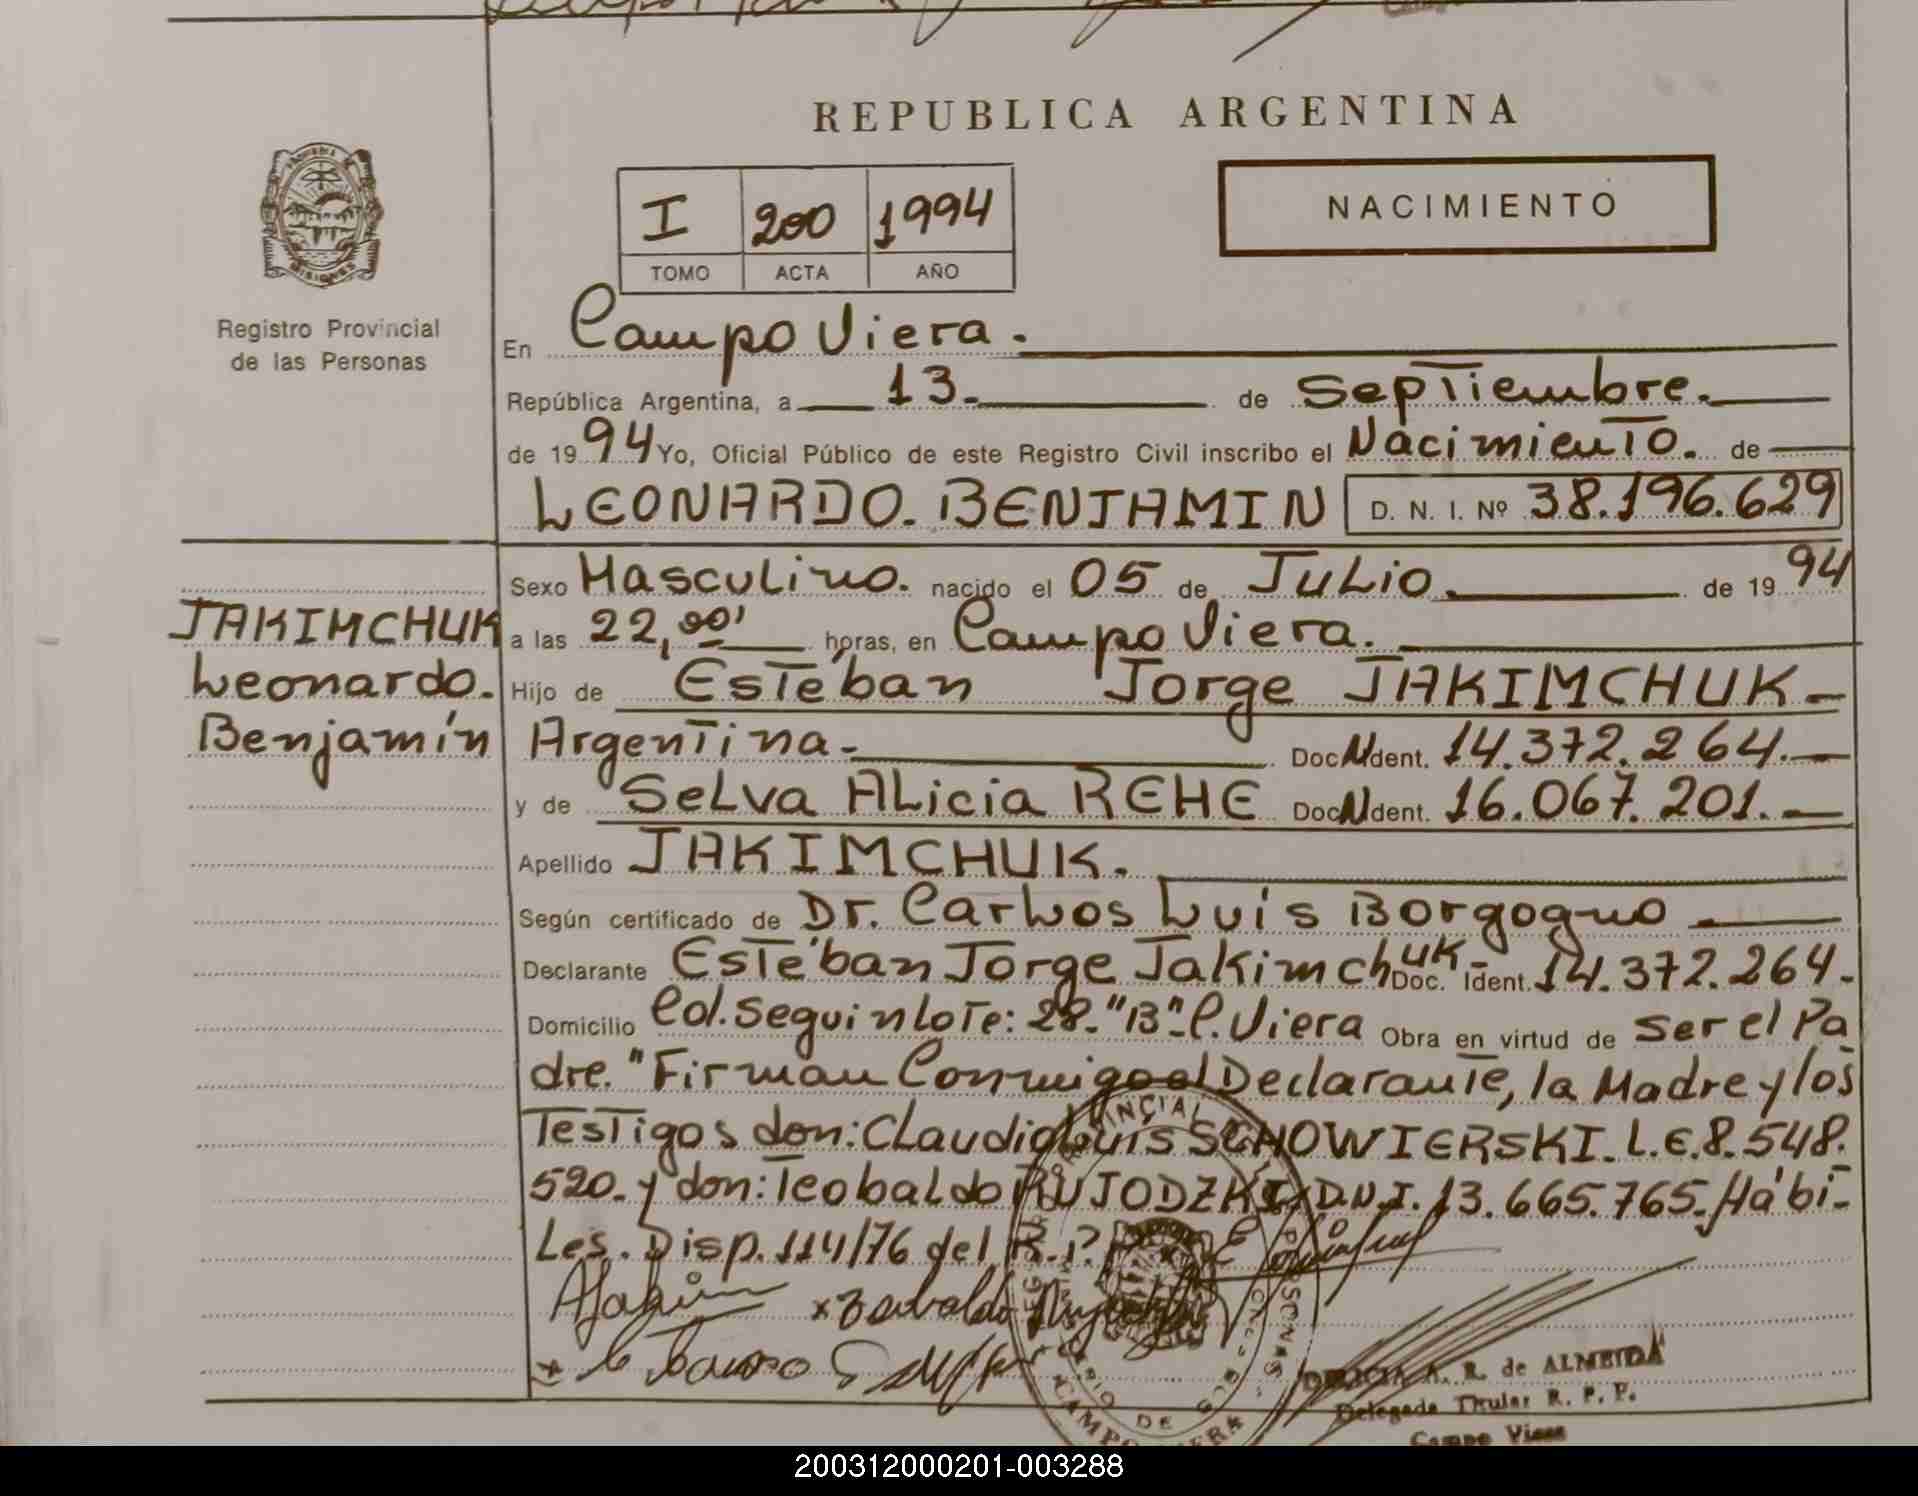 REPUBLICA ARGENTINA
I 200 1994
TOMO ACTA AÑO
NACIMIENTO
MISIONES
Registro Provincial
de las Personas
En Campo Viera.
República Argentina, a 13. de Septiembre.
de 1994 Yo, Oficial Público de este Registro Civil inscribo el Nacimiento. de
LEONARDO. BENJAMIN D. N. I. Nº 38.196.629
JAKIMCHUK
Leonardo.
Benjamín
Sexo Masculino. nacido el 05 de Julio. de 1994
a las 22,00' horas, en Campo Viera.
Hijo de Estéban Jorge JAKIMCHUK-
Argentina.- Doc. Ident. 14.372.264.-
y de Selva Alicia REHE Doc. Ident. 16.067.201.-
Apellido JAKIMCHUK.
Según certificado de Dr. Carlos Luis Borgogno
Declarante Estéban Jorge Jakimchuk- Doc. Ident. 14.372.264.
Domicilio Col. Seguin Lote: 28-"B"-C. Viera Obra en virtud de ser el Pa
dre. "Firman Conmigo el Declarante, la Madre y los
Testigos don: Claudio Luis SCHOWIERSKI. L.E. 8.548.
520. y don: Teobaldo RUJODZKI D.N.I. 13.665.765. Hábi-
Les. Disp. 114/76 del R.P.
R. de ALMEIDA
Delegada Titular R. P. P.
Campo Viera
200312000201-003288